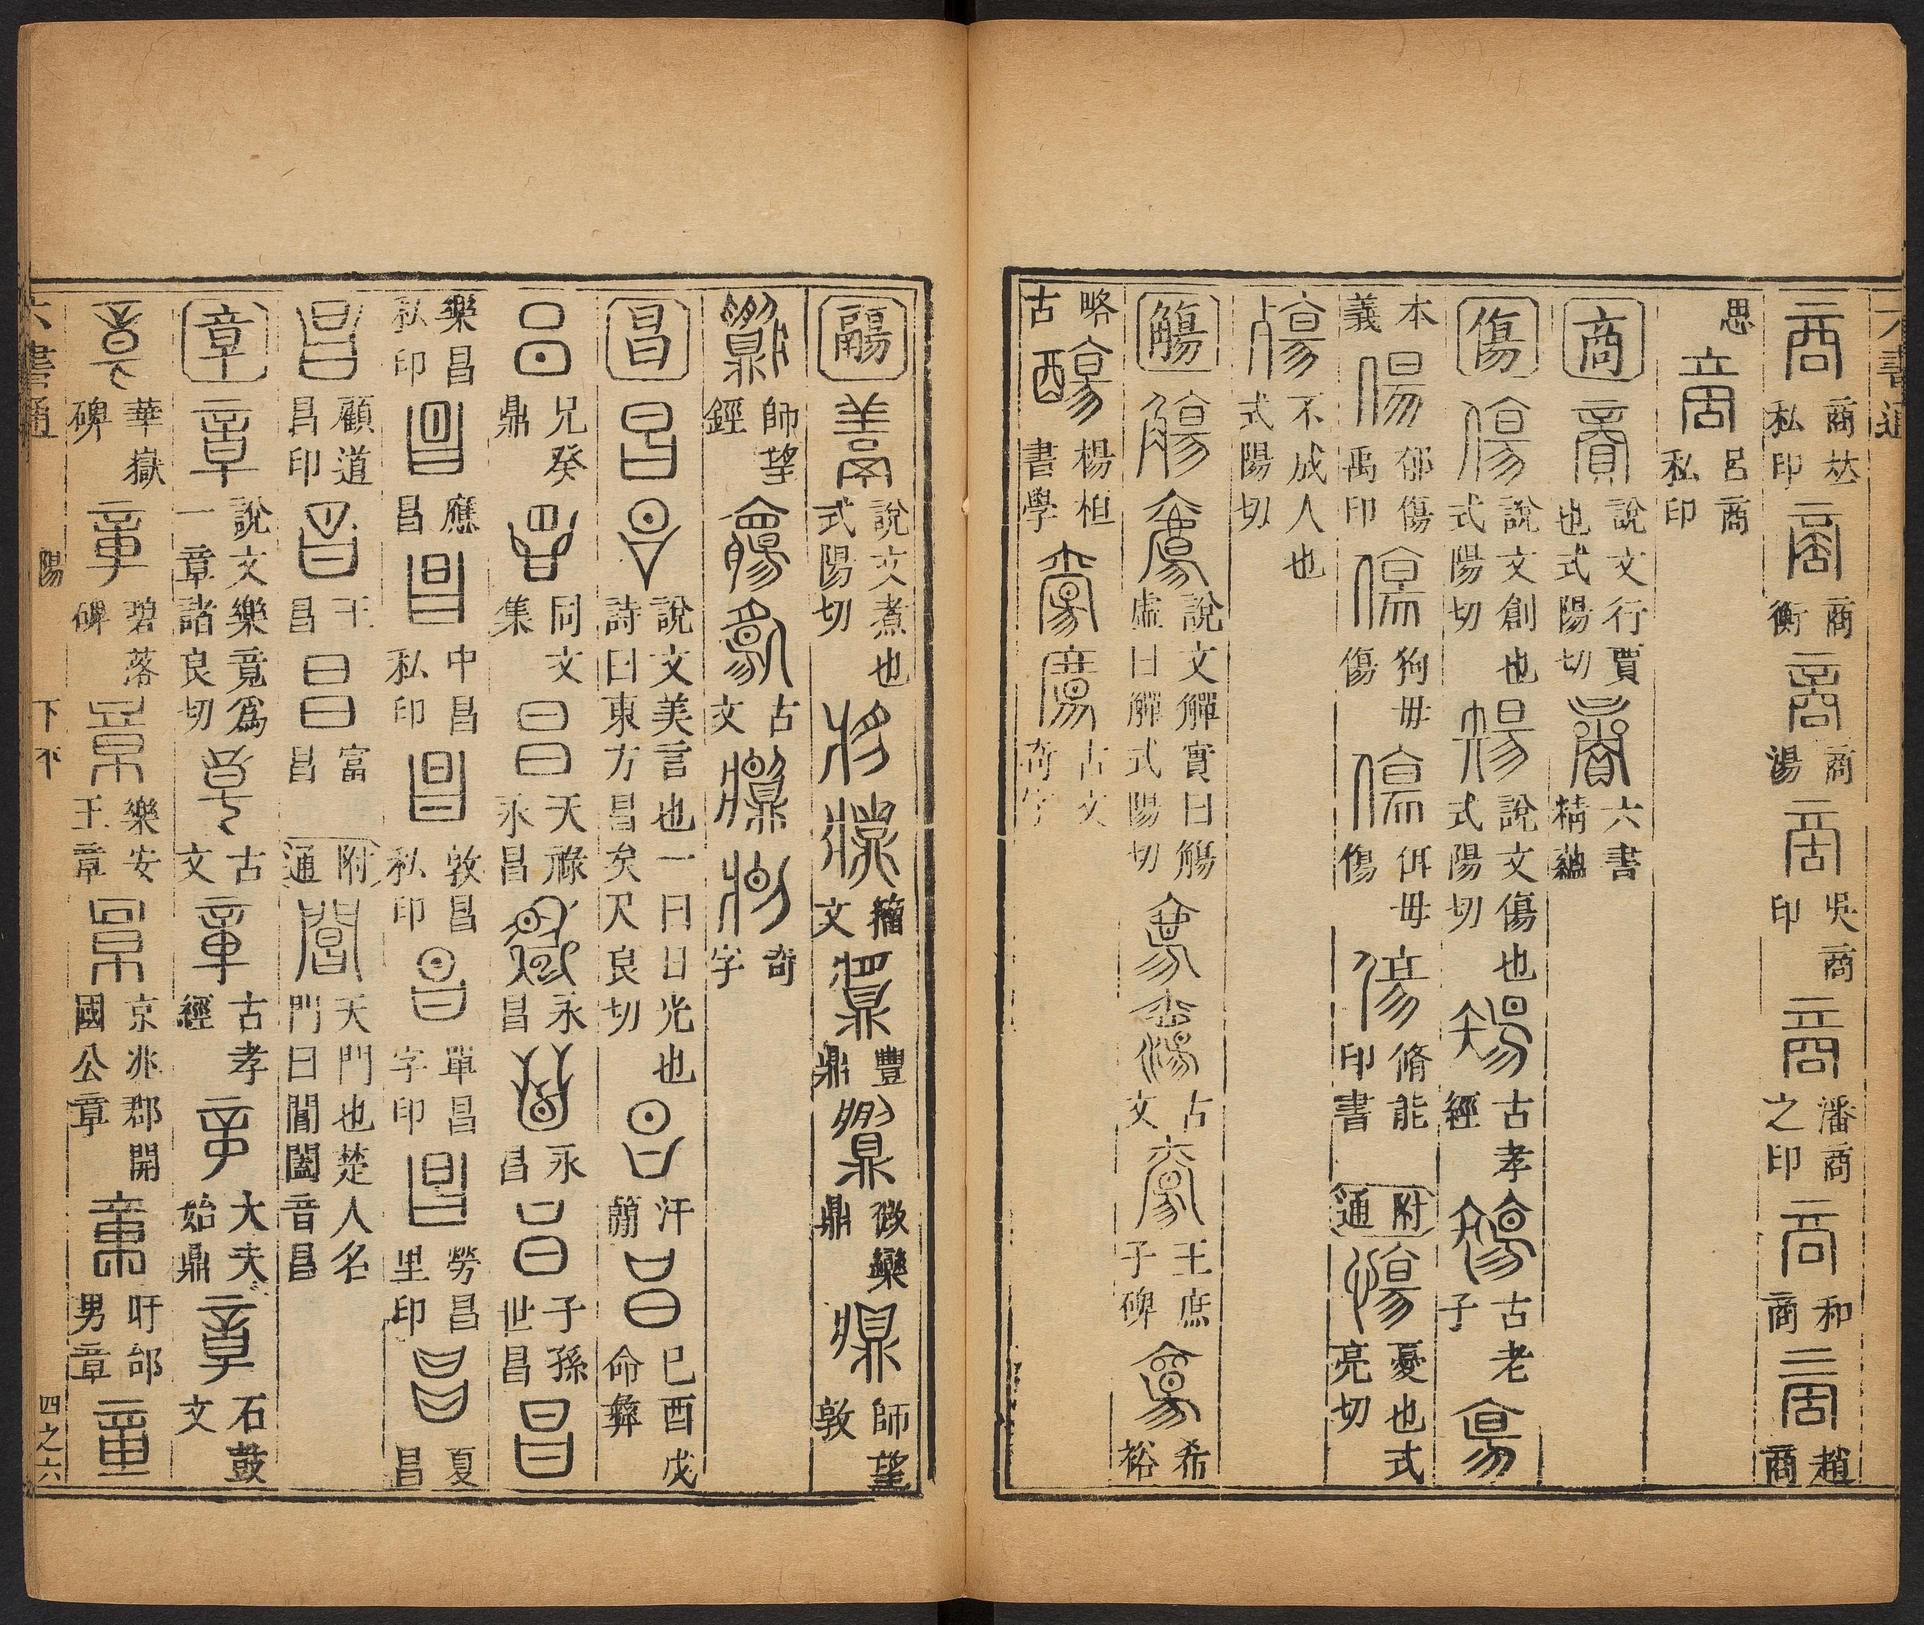 六書通
商 商㚘私印 商 商衡 商 商湯 商 吳商印 商 潘商之印 商 和商 商 趙商
思 商 呂商私印
商 𧶜 說文行賈也式陽切 六書精蘊
傷 傷 說文創也式陽切 說文傷也式陽切 古孝經 古老子
本義 傷 郁傷禹印 傷 狗毋傷 傷 侕毋傷 傷 脩能印書 附通 慯 憂也式亮切
殤 不成人也式陽切
觴 觴 說文觶實曰觴虛曰觶式陽切 古文 王庶子碑 希裕
略古 楊桓書學 古文奇字
鬺 說文煮也式陽切 籀文 豐鼎 微欒鼎 師望敦
師望鉶 古文 奇字
昌 昌 說文美言也一曰日光也詩曰東方昌矣尺良切 汗簡 巳酉戍命彝
兄癸鼎 同文集 天祿永昌 永昌 永昌 子孫世昌
樂昌私印 應昌 中昌私印 敦昌私印 單昌字印 勞昌里印 夏昌
昌 顧道昌印 王昌 富昌 附通 閶 天門也楚人名門曰閶闔音昌
章 章 說文樂竟爲一章諸良切 古文 古孝經 大夫始鼎 石鼓文
華嶽碑 碧落碑 樂安王章 京兆郡開國公章 盱邰男章
六書通 陽 下平 四之六